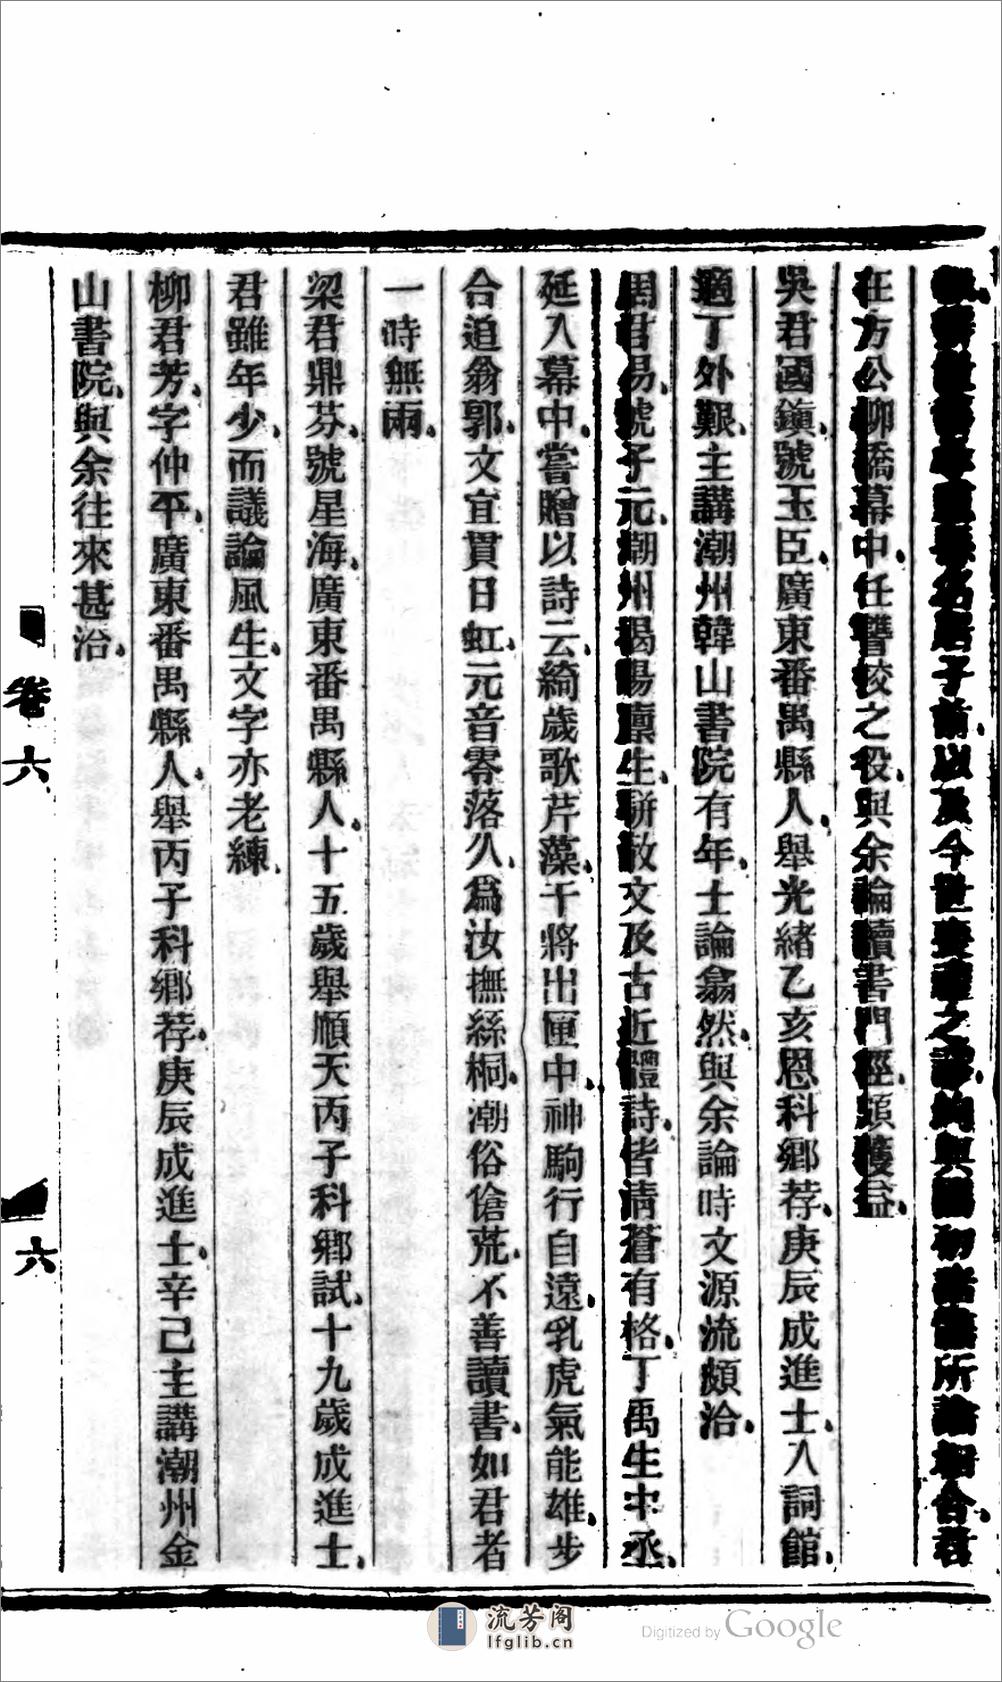 子前以及今世安之論初所論相合君
在方公柳橋幕中任讐校之役與余論讀書門徑頗獲益
吳君國鎮號玉臣廣東番禺縣人舉光緒乙亥恩科鄉荐庚辰成進士入詞館
適丁外艱主講潮州韓山書院有年士論翕然與余論時文源流頗洽
周君易號子元潮州揭陽廩生駢散文及古近體詩皆清蒼有格丁禹生中丞
延入幕中嘗贈以詩云綺歲歌芹藻干將出匣中神駒行自遠乳虎氣能雄步
合追翁郭文宜貫日虹元音零落久爲汝撫絲桐潮俗傖荒不善讀書如君者
一時無兩
梁君鼎芬號星海廣東番禺縣人十五歲舉順天丙子科鄉試十九歲成進士
君雖年少而議論風生文字亦老練
柳君芳字仲平廣東番禺縣人舉丙子科鄉荐庚辰成進士辛己主講潮州金
山書院與余往來甚洽
卷六
六
流芳阁
lfglib.cn
Digitized by Google